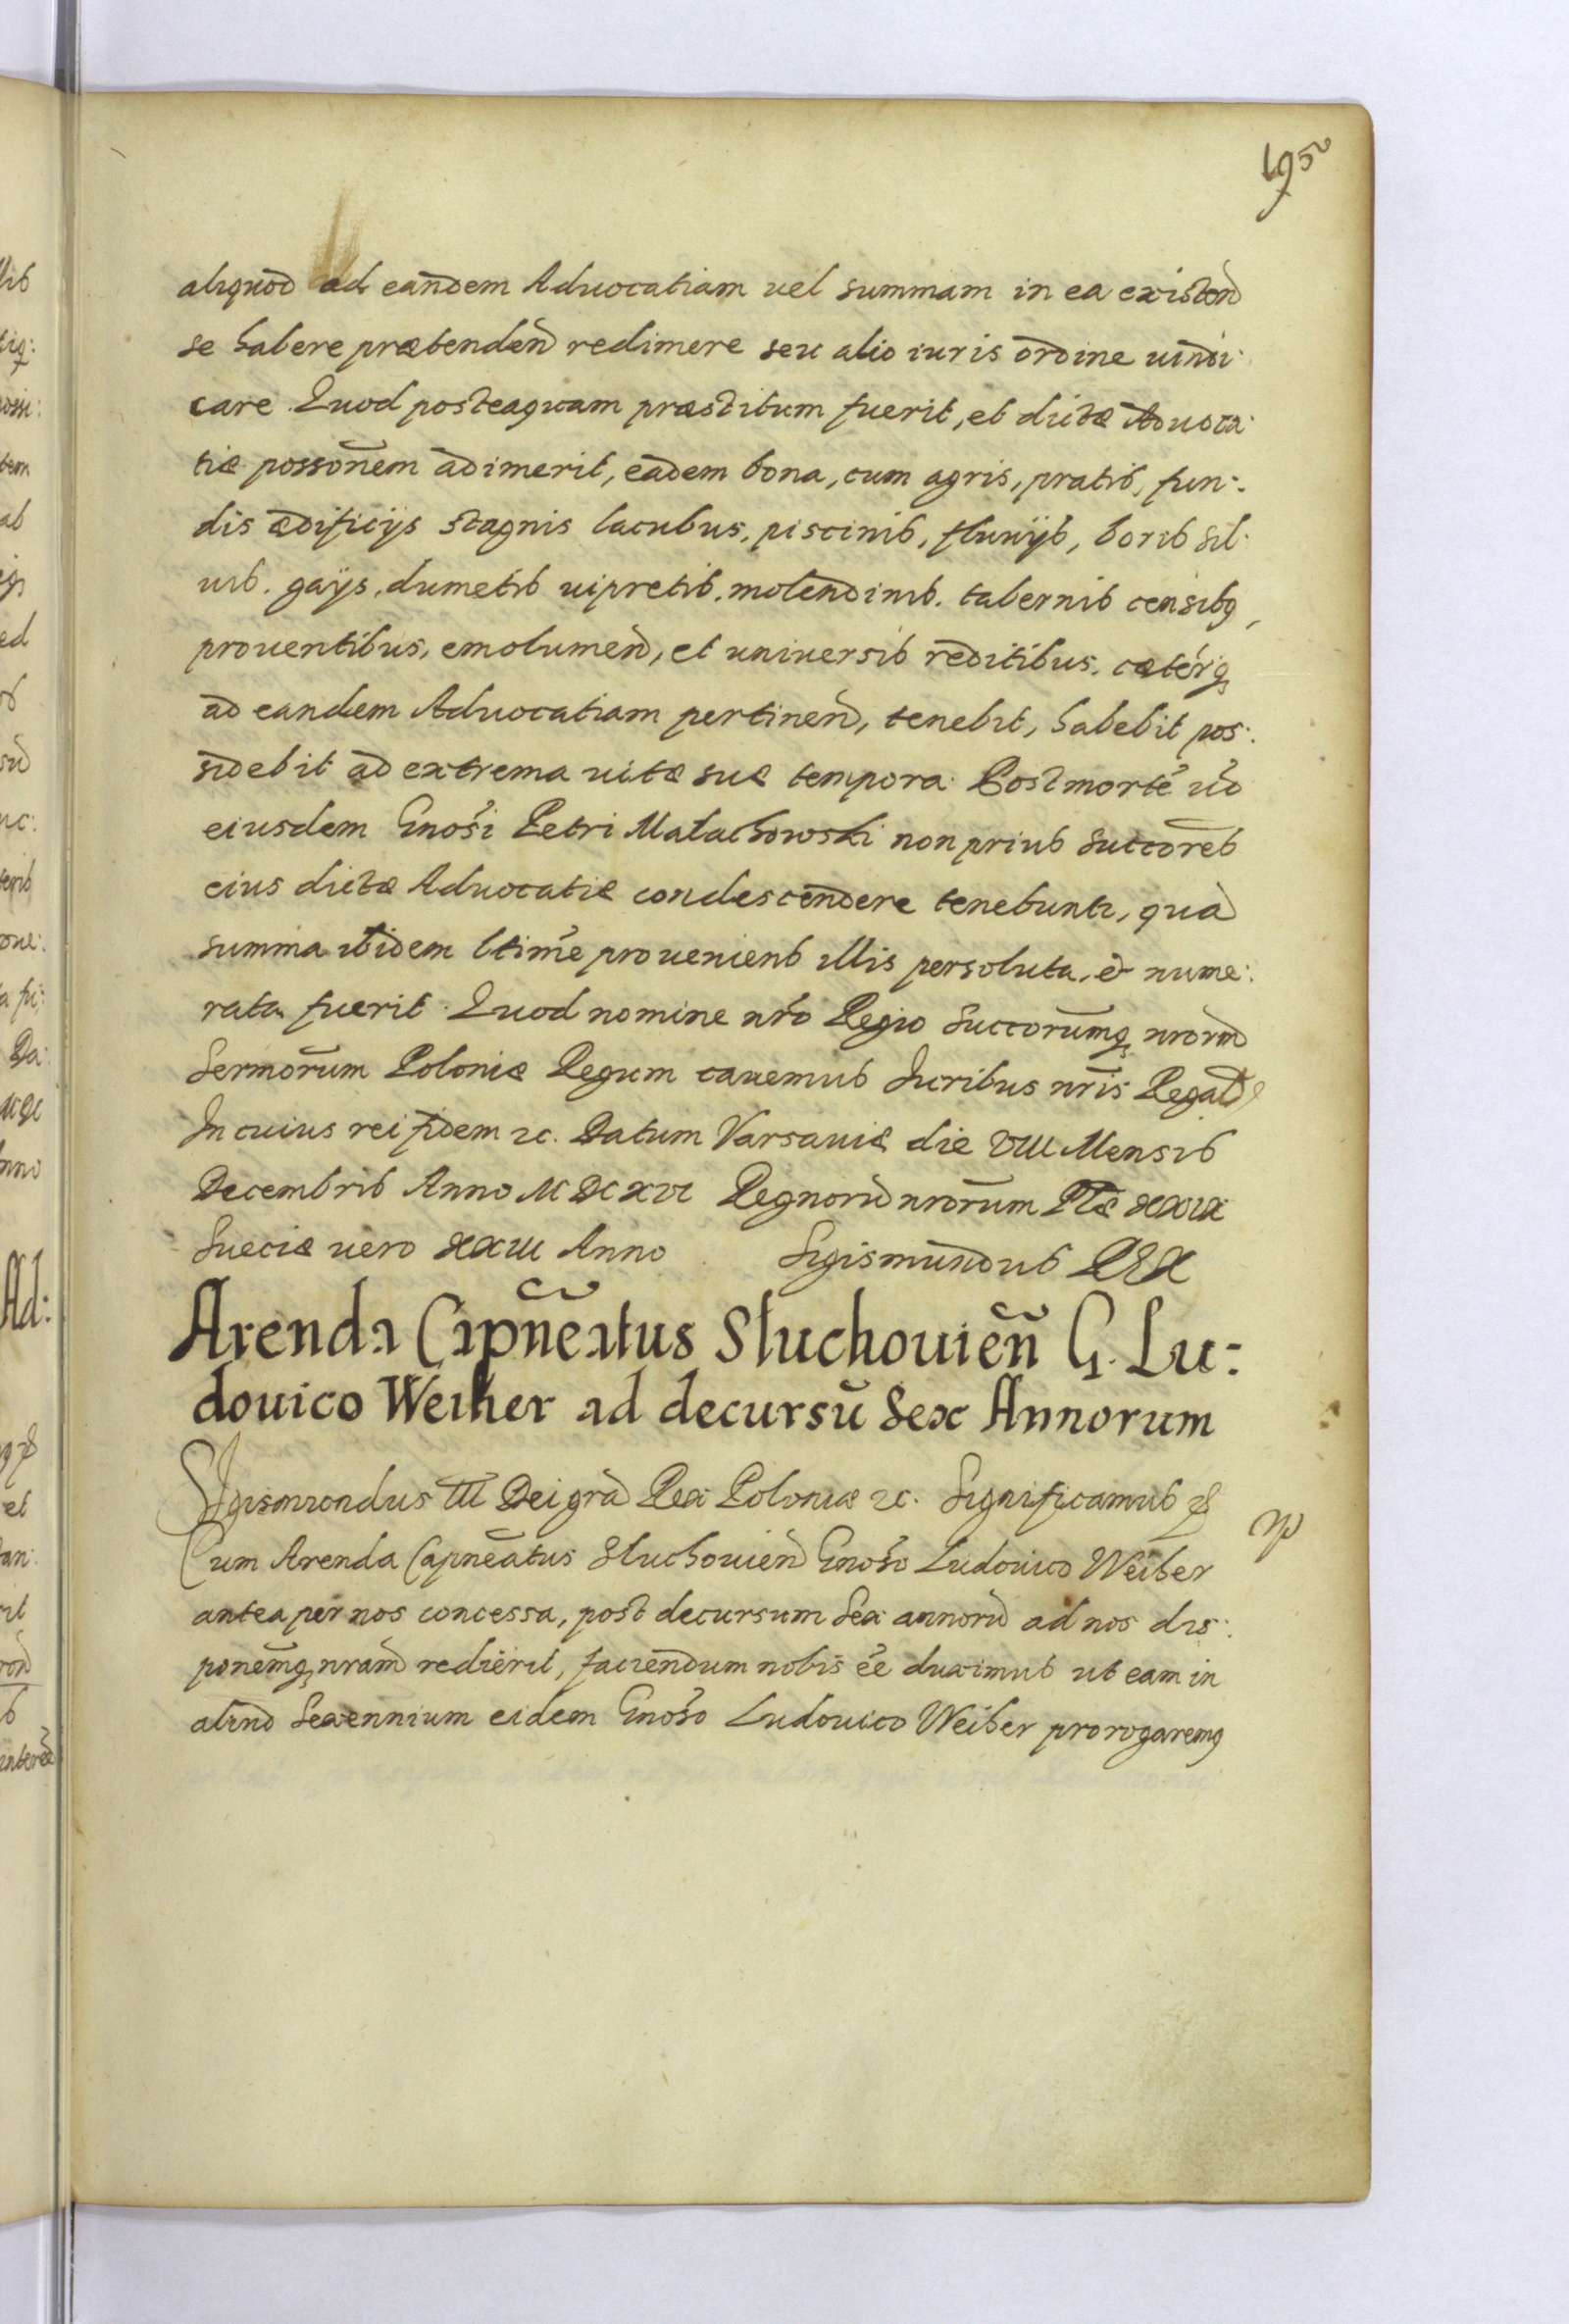 195
aliquod ad eandem Aduocatiam uel summam in ea existen̄
se habere prætenden̄ redimere seu alio iuris ordine uindi:
care. Quod posteaquam præstitum fuerit, et dictæ Aduoca:
tiæ posson̄em adimerit, eadem bona, cum agris, pratis, fun:
dis ædificijs stagnis lacubus, piscinis, fluuijs, boris sil:
uis. gays, dumetis uipretis. molendinis. tabernis censibq,
prouentibus, emolumen̄, et uniuersis reditibus. cæterq
ad eandem Aduocatiam pertinen̄, tenebit, habebit pos:
sidebit ad extrema uitæ suæ tempora. Post mortē uō
eiusdem Gnosi Petri Malachowski non prius succores
eius dictæ Aduocatiæ condescendere tenebuntr, quā
summa ibidem ltimē proueniens illis persoluta, & nume:
rata fuerit. Quod nomine nr̄o Regio Succorumq nrorū
Sermorum Poloniæ Regum cauemus Iuribus nr̄is Regalb
In cuius rei fidem ꝛc. Datum Varsauiæ die VIII Mensis
Decembris Anno MDCXVI Regnorū nrorum Pl̄æ XXIX
Sueciæ uero XXIII Anno Sigismundus REX
Arenda Capn̄eatus Sluchouien̄ G. Lu:
douico Weiher ad decursū Sex Annorum
Sigismundus III Dei gr̄a Rex Poloniæ ꝛc. Significamus
Cum Arenda Capn̄eatus Sluchouien̄ Gnoso Ludouico Weiher
antea per nos concessa, post decursum Sex annorū ad nos dis:
ponēmq nram redierit, faciendum nobis ēe duximus ut eam in
aliud Sexennium eidem Gnoso Ludouico Weiher prorogaremq